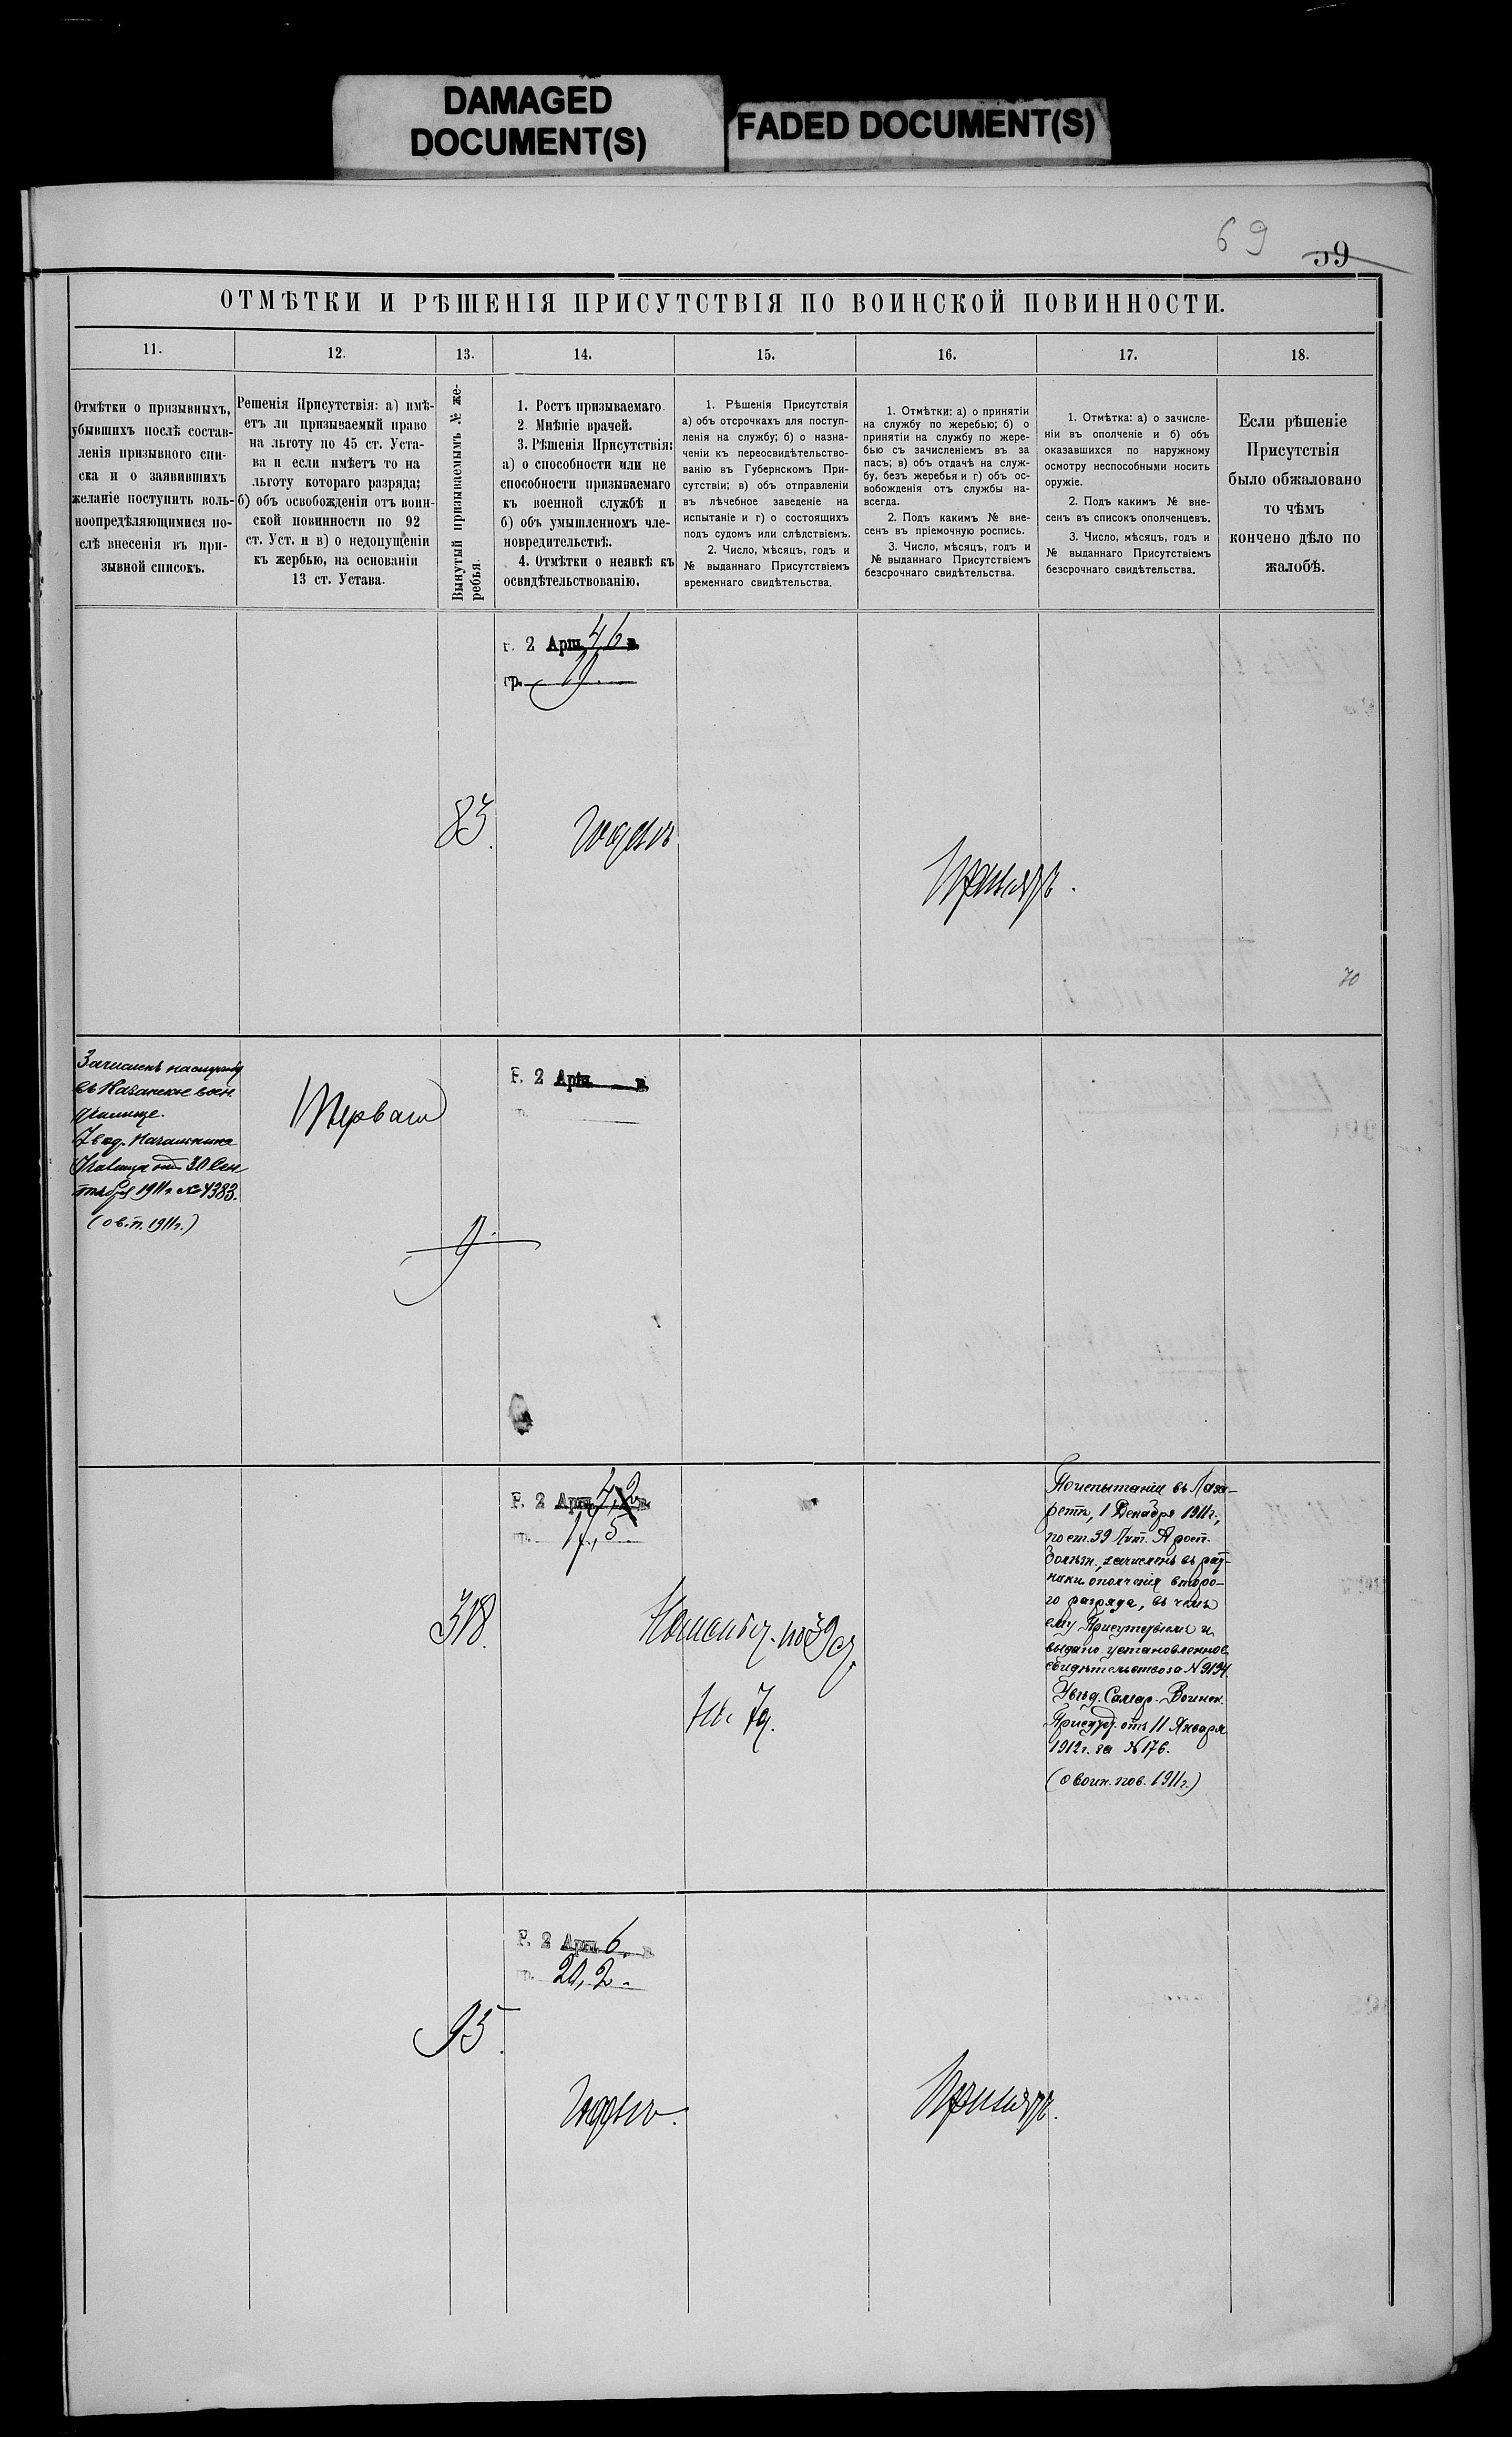 DAMAGED
DOCUMENT(S)
FADED DOCUMENT(S)
69
59
ОТМѢТКИ И РѢШЕНІЯ ПРИСУТСТВІЯ ПО ВОИНСКОЙ ПОВИННОСТИ.
11.
12.
13.
14.
15.
16.
17.
18.
Отмѣтки о призывныхъ,
убывшихъ послѣ состав-
ленія призывного спи-
ска и о заявившихъ
желаніе поступить воль-
ноопредѣляющимися по-
слѣ внесенія въ при-
зывной списокъ.
Решенія Присутствія: а) имѣ-
етъ ли призываемый право
на льготу по 45 ст. Уста-
ва и если имѣетъ то на
льготу котораго разряда;
б) объ освобожденіи отъ воин-
ской повинности по 92
ст. Уст. и в) о недопущеніи
къ жербью, на основаніи
13 ст. Устава.
Вынутый призываемымъ № же-
ребья.
1. Ростъ призываемаго.
2. Мнѣніе врачей.
3. Рѣшенія Присутствія:
а) о способности или не
способности призываемаго
къ военной службѣ и
б) объ умышленномъ чле-
новредительствѣ.
4. Отмѣтки о неявкѣ къ
освидѣтельствованію.
1. Рѣшенія Присутствія
а) объ отсрочкахъ для поступ-
ленія на службу; б) о назна-
ченіи къ переосвидѣтельство-
ванію въ Губернскомъ При-
сутствіи; в) объ отправленіи
въ лѣчебное заведеніе на
испытаніе и г) о состоящихъ
подъ судомъ или слѣдствіемъ.
2. Число, мѣсяцъ, годъ и
№ выданнаго Присутствіемъ
временнаго свидѣтельства.
1. Отмѣтки: а) о принятіи
на службу по жеребью; б) о
принятіи на службу по жере-
бью съ зачисленіемъ въ за
пасъ; в) объ отдачѣ на служ-
бу, безъ жеребья и г) объ ос-
вобожденія отъ службы на-
всегда.
2. Подъ какимъ № вне-
сенъ въ пріемочную роспись.
3. Число, мѣсяцъ, годъ и
№ выданнаго Присутствіемъ
безсрочнаго свидѣтельства.
1. Отмѣтка: а) о зачисле-
ніи въ ополченіе и б) объ
оказавшихся по наружному
осмотру неспособными носить
оружіе.
2. Подъ какимъ № вне-
сенъ въ списокъ ополченцевъ.
3. Число, мѣсяцъ, годъ и
№ выданнаго Присутствіемъ
безсрочнаго свидѣтельства.
Если рѣшеніе
Присутствія
было обжаловано
то чѣмъ
кончено дѣло по
жалобѣ.
Р. 2 Арш. 4,6 в.
гр. 19.
83.
Годенъ
Принятъ.
70
Зачисленъ на службу
въ Казанское воен.
училище.
Увед. Начальника
Училища отъ 30 Сен
тября 1911 г. № 4383.
(о в. п. 1911 г.)
Перваго
Р. 2 Арш. в.
Р. 2 Арш. 4,2 в.
гр. 17,5
318.
На испыт. по 39 ст.
По испытаніи въ Лаза-
ретѣ, 1 Декабря 1911 г.,
по ст. 39 Лит. А росп.
болѣзн., зачисленъ въ рат-
ники ополченія второ-
го разряда, въ чемъ
ему Присутствіемъ и
выдано установленное
свидѣтельство за № 9194.
Увѣд. Самар. Воинск.
Присут. отъ 11 Января
1912 г. за № 176.
(о воин. пов. 1911 г.)
Р. 2 Арш. 6. в.
гр. 20,2.
95.
Годенъ.
Принятъ.